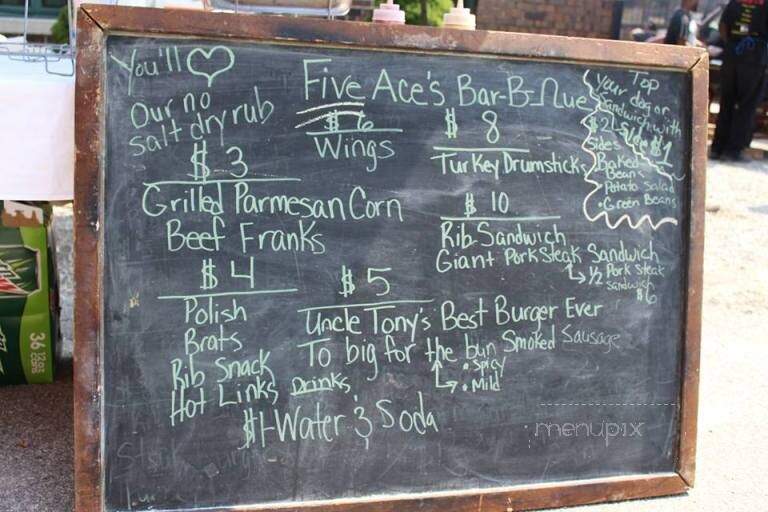 You'll
Our no
salt dry rub
Five Ace's Bar-B-Que
$6
Wings
$8
Turkey Drumsticks
Top
your dog or
sandwich with
$2
sides $1
Baked
Beans
• Potato Salad
• Green Beans
$3
Grilled Parmesan Corn
Beef Franks
$10
Rib Sandwich
Giant Pork Steak Sandwich
½ Pork Steak
Sandwich
$6
$4
Polish
Brats
Rib Snack
Hot Links
$5
Uncle Tony's Best Burger Ever
To big for the bun Smoked Sausage
• Spicy
• Mild
Drinks
$1-Water & Soda
menupix
36 12 OZ CANS